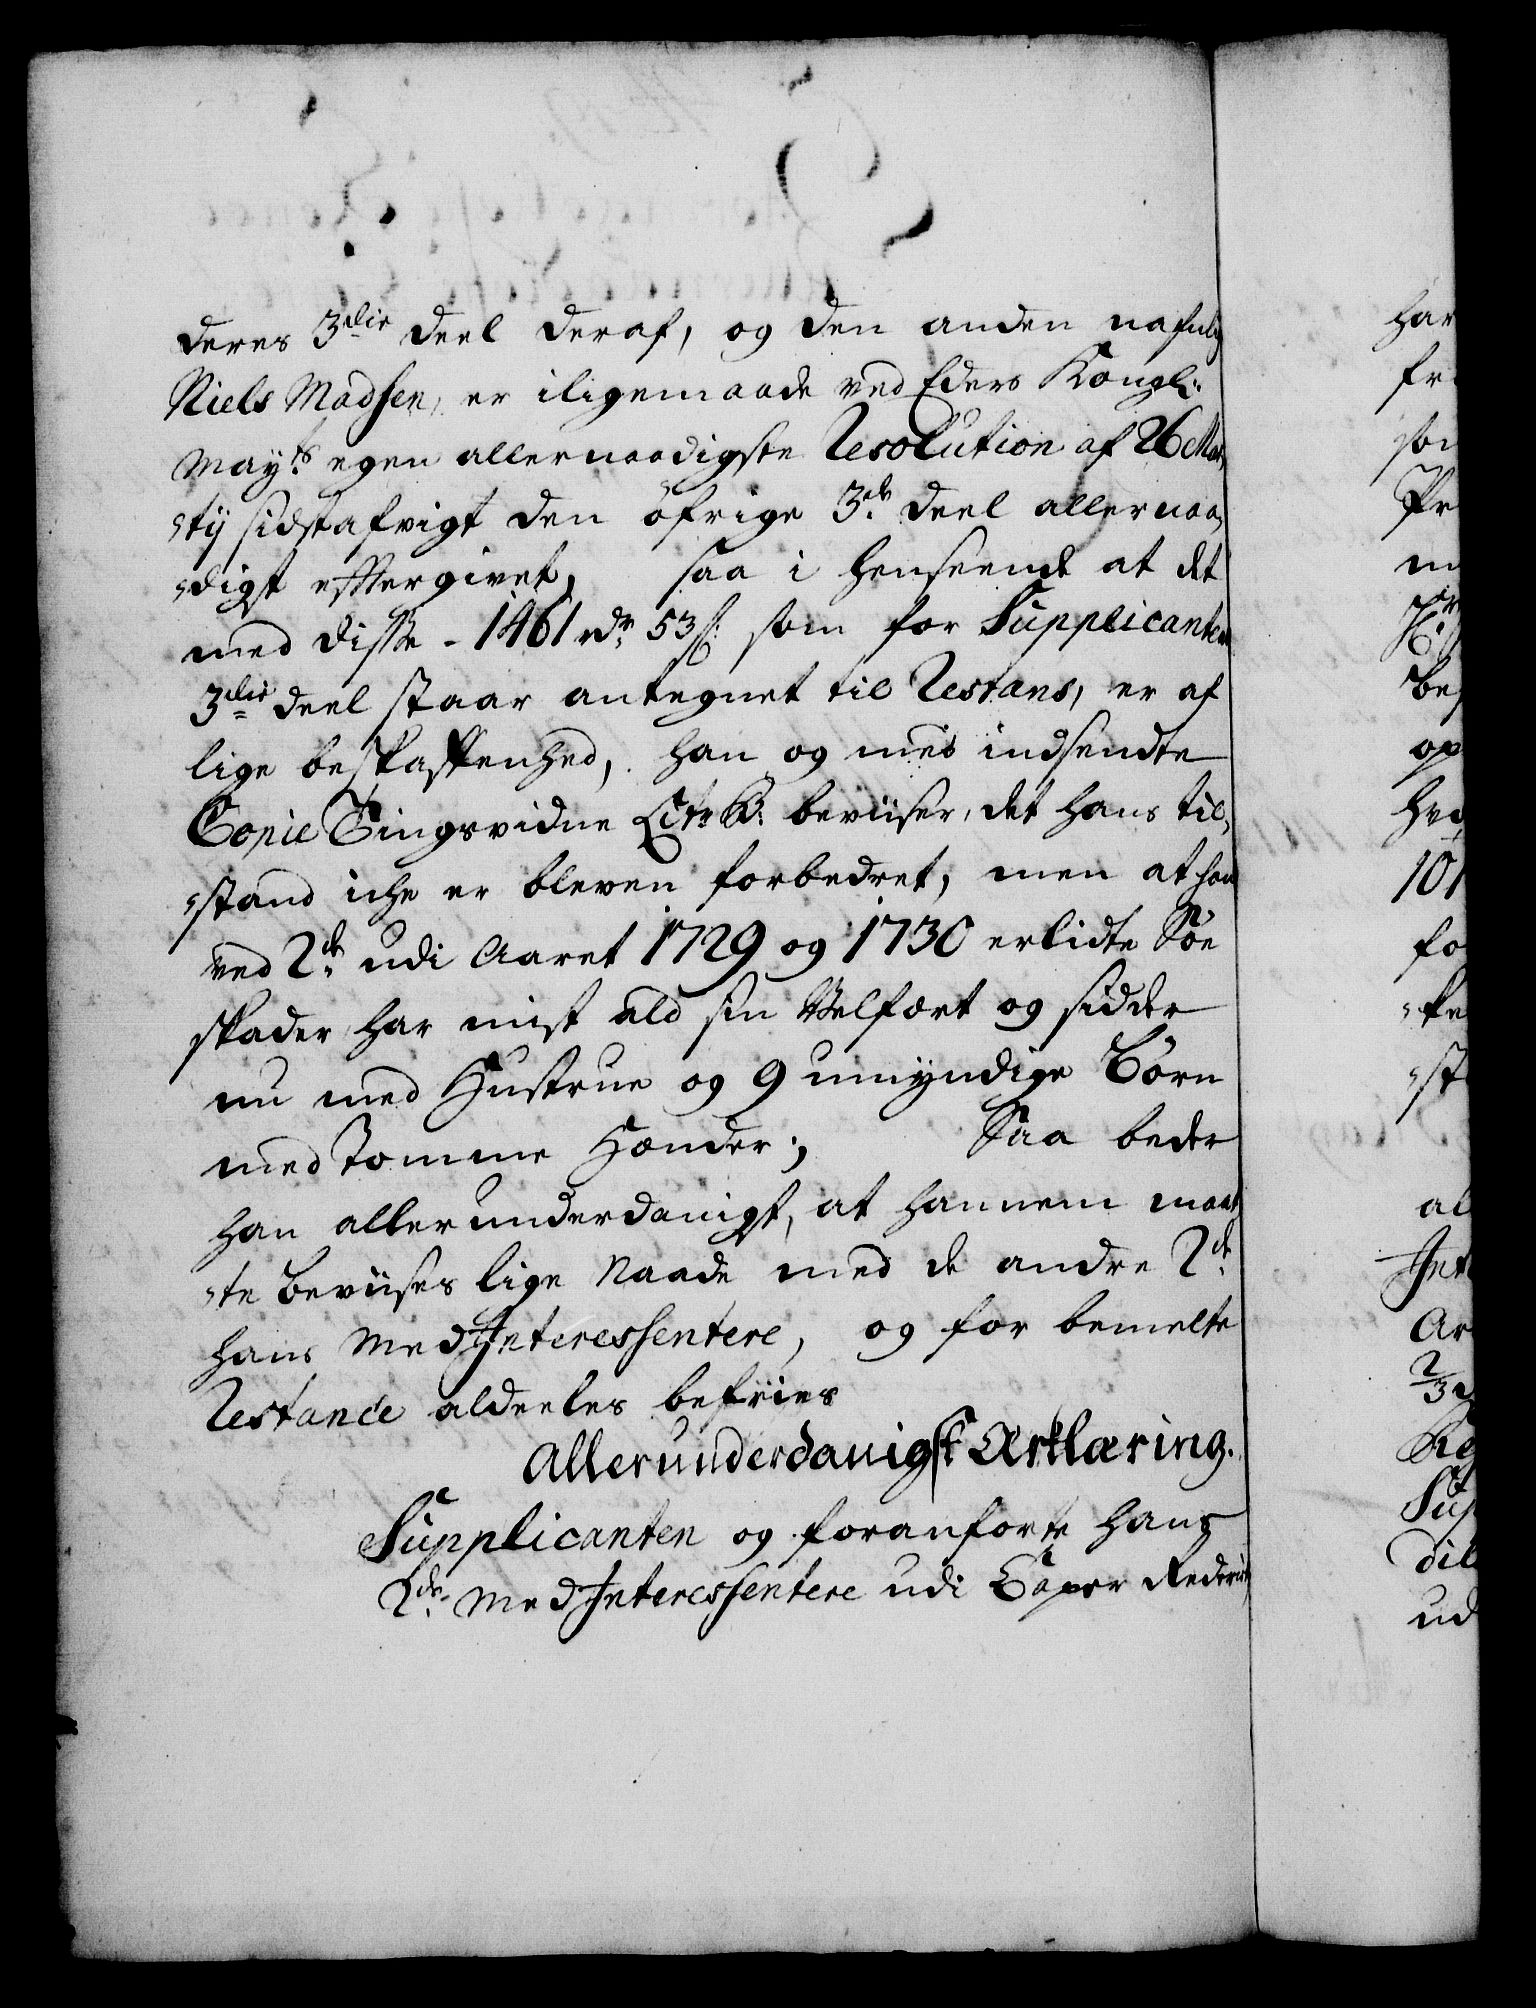 deres 3die deel deraf, og den anden nafnlig
Niels Madsen, er iligemaade ved Eders Kongl:
May:ts egen allernaadigste Resolution af 26 Mar,
,,tij sidstafvigt den öfrige 3de deel allernaa,
,,digst efftergivet, saa i henseende at det
med disse - 1461 rdr 53 ß: som for Supplicanten
3die deel staar antegnet til Restans, er af
lige beskaffenhed, han og med indsendte
Copie Tingsvidne Litr: B: beviiser, det hans til,
,,stand iche er bleven forbedret, men at han
ved 2de udi Aaret 1729 og 1730 erlidte Söe
skader har mist ald sin Velfært og sidder
nu med Hustrue og 9 umÿndige Börn
med Tomme Hænder; Saa beder
han allerunderdanigst, at hannem maat
,,te beviises lige Naade med de andre 2de
hans MedInteressentere, og for bemelte
Restance aldeeles befriies
Allerunderdanigst Ærklæring.
Supplicanten og foranförte hans
2de MedInteressentere udi Caper Rederiet
har
fr
son
Pr
m
bes
op
hvo
101
fo
,,ke
,,st
al
Int
Ar
2/3
Re
Sup
dil
ud